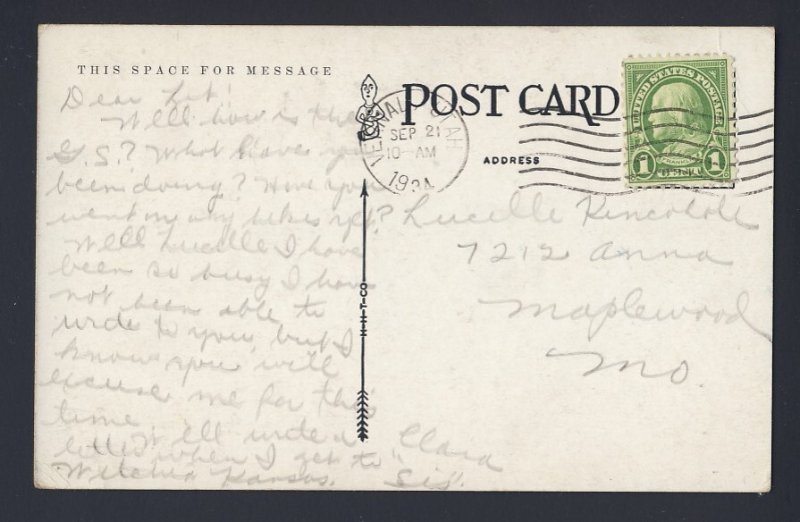 THIS SPACE FOR MESSAGE
Dear
Well how is the
G.S.? What have you
been doing? Have you
went on any hikes yet?
Well Lucille I have
been so busy I have
not been able to
write to you, but I
know you will
excuse me for this
time
Will write a
letter when I get to
Witchia Kansas.
Clara
"Sis".
POST CARD
ADDRESS
VERNAL UTAH
SEP 21
10-AM
1934
UNITED STATES POSTAGE
FRANKLIN
1 CENT 1
N-H-T-CO
Lucille
7212 Anna
Maplewood
Mo.